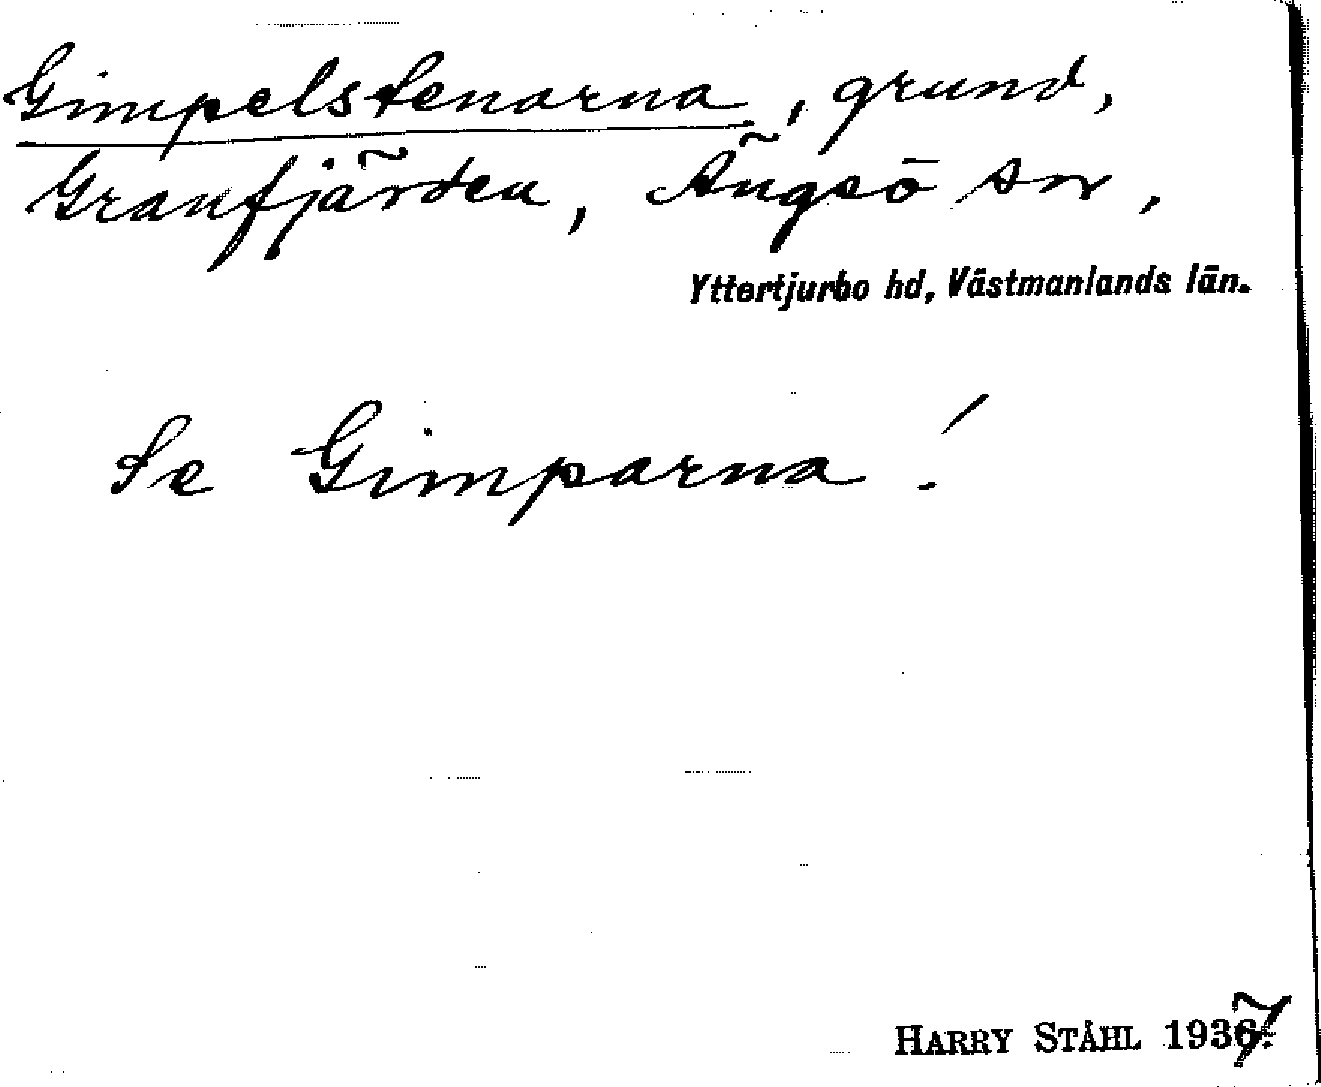 Gimpelstenarna, grund,
Granfjärden, Ängsö sn,
Yttertjurbo hd, Västmanlands län.
Se Gimparna!
HARRY STÅHL 1937